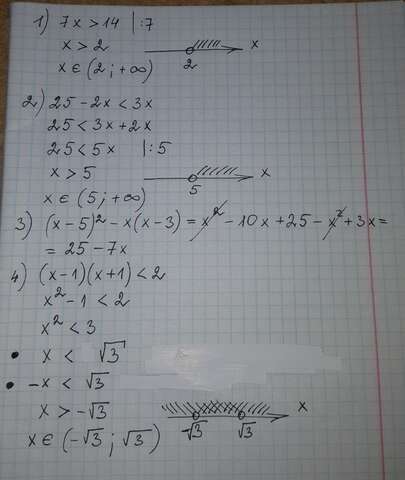 1) 7x > 14 |:7
x > 2
x
2
x ∈ (2 ; +∞)
2) 25 - 2x < 3x
25 < 3x + 2x
25 < 5x |:5
x > 5
x
5
x ∈ (5 ; +∞)
3) (x - 5)² - x(x - 3) = x² - 10x + 25 - x² + 3x =
= 25 - 7x
4) (x - 1)(x + 1) < 2
x² - 1 < 2
x² < 3
• x < √3
• -x < √3
x > -√3
x
-√3 √3
x ∈ (-√3 ; √3)